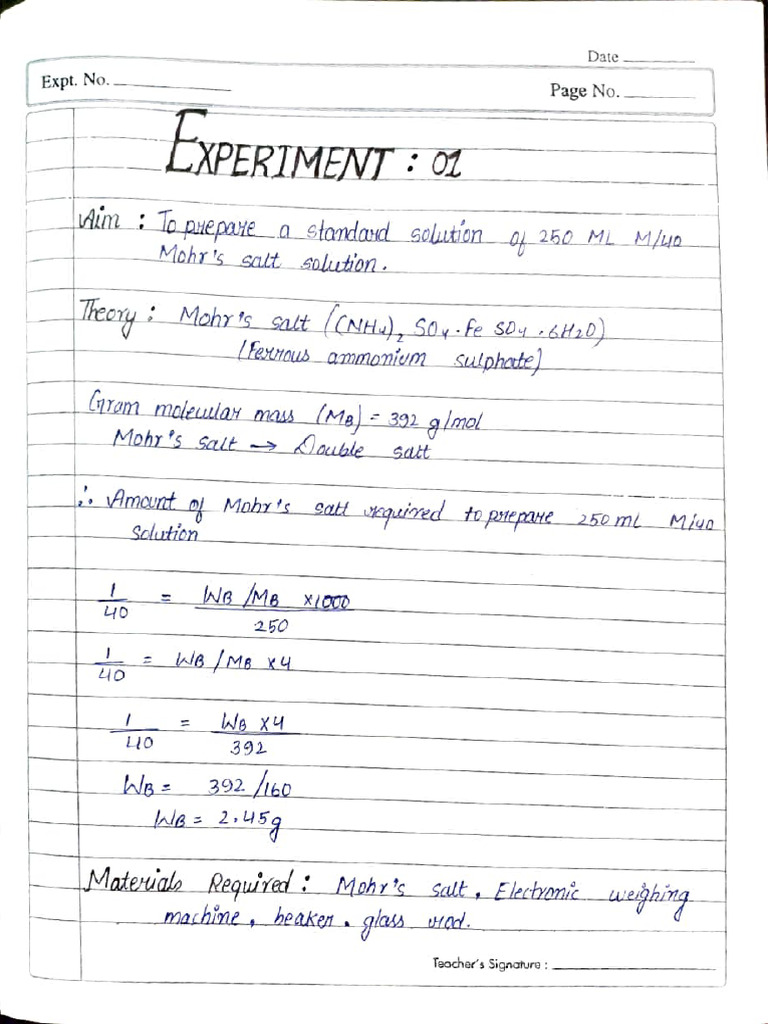 Date
Expt. No.
Page No.
EXPERIMENT : 01
Aim : To prepare a standard solution of 250 ML M/40
Mohr's salt solution.
Theory : Mohr's salt ((NH4)2 SO4 . Fe SO4 . 6H2O)
(Ferrous ammonium sulphate)
Gram molecular mass (MB) = 392 g/mol
Mohr's salt → Double salt
∴ Amount of Mohr's salt required to prepare 250 mL M/40
solution
1/40 = WB /MB ×1000 / 250
1/40 = WB / MB × 4
1/40 = WB × 4 / 392
WB = 392 /160
WB = 2.45g
Materials Required : Mohr's salt, Electronic weighing
machine, beaker, glass rod.
Teacher's Signature :